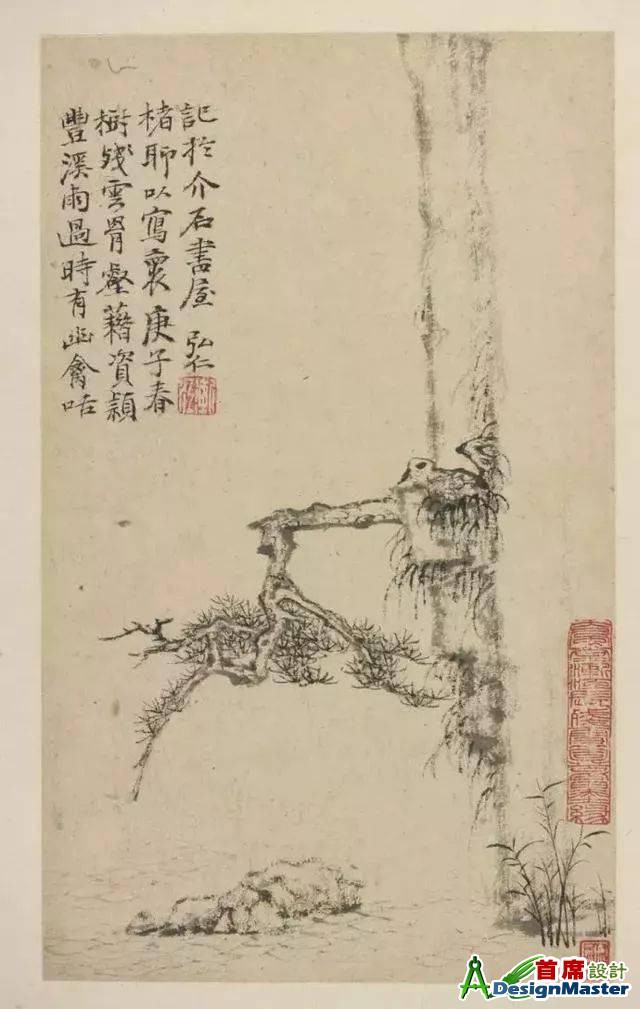 豐溪雨過時有幽禽咕
樹殘雲罥壑藉資穎
楮聊以寫褱庚子春
記於介石書屋 弘仁
首席設計
ADesignMaster